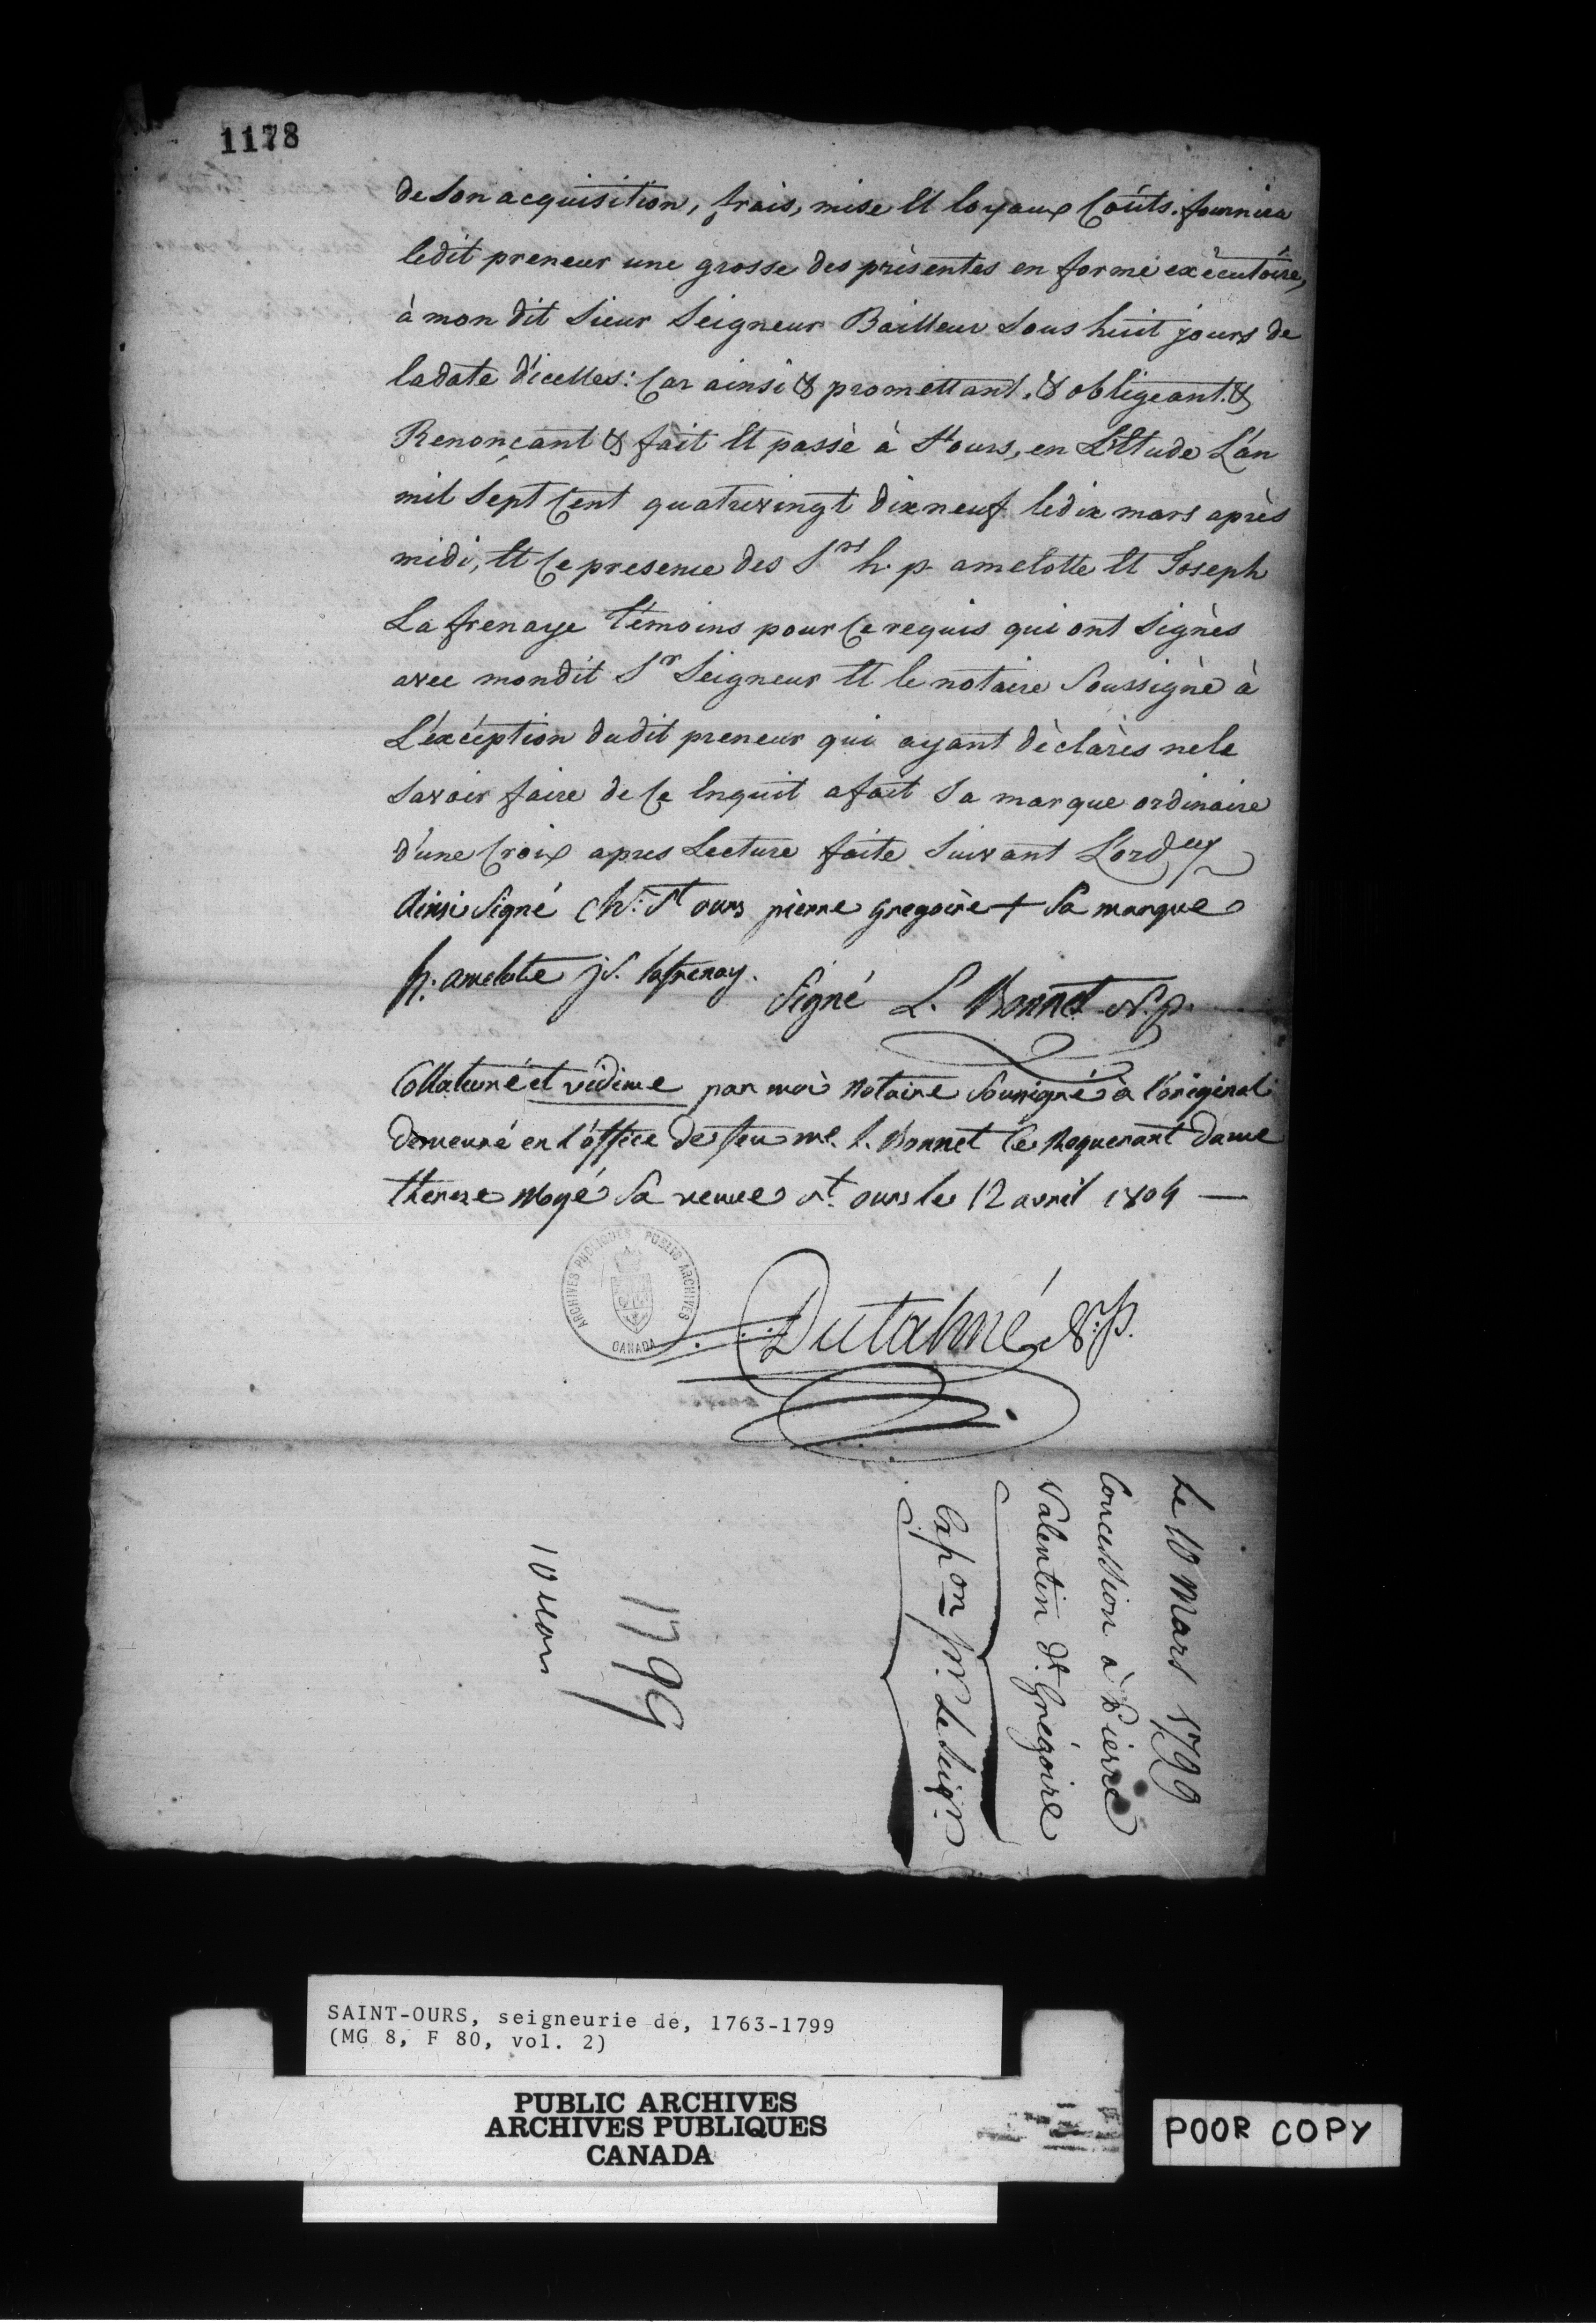 1178
de Son acquisition, frais, mise Et loyaux Coûts. fournira
ledit preneur une grosse des présentes en forme exècutoire,
à mon dit Sieur Seigneur Bailleur Sous huit jours de
la date d'icelles: Car ainsi & promettant. & obligeant. &
Renonçant & fait Et passè à St ours, en L'Etude L'an
mil Sept Cent quatrevingt dixneuf le dix mars après
midi, Et Ce presence des Srs h. p. amelotte Et Joseph
La frenaye Témoins pour Ce requis qui ont Signès
avec mondit Sr Seigneur Et le notaire Soussignè à
L'éxcéption dudit preneur qui ayant dèclarès ne le
Savoir faire de Ce Enquit a fait Sa marque ordinaire
d'une Croix apres Lecture faite Suivant L'ordce
Ainsi Signé Ch: St ours pierre gregoire + Sa marque
h: amelotte js. lafrenay.
Signé L. Bonnet N. p.
Collationé et vidimé par moi Notaire Sousigné à l'original
demeuré en l'office de feu me. l. Bonnet Ce Requerant dame
therese Mogé Sa veuve St. ours le 12 avril 1804 —
ARCHIVES PUBLIQUES PUBLIC ARCHIVES
CANADA
Dutalmé N:P.
Le 10 Mars 1799
Concession à Pierre
Valentin dt. Grégoire
Expon pr. Le Seigr.
1799
10 Mars
SAINT-OURS, seigneurie de, 1763-1799
(MG 8, F 80, vol. 2)
PUBLIC ARCHIVES
ARCHIVES PUBLIQUES
CANADA
POOR COPY